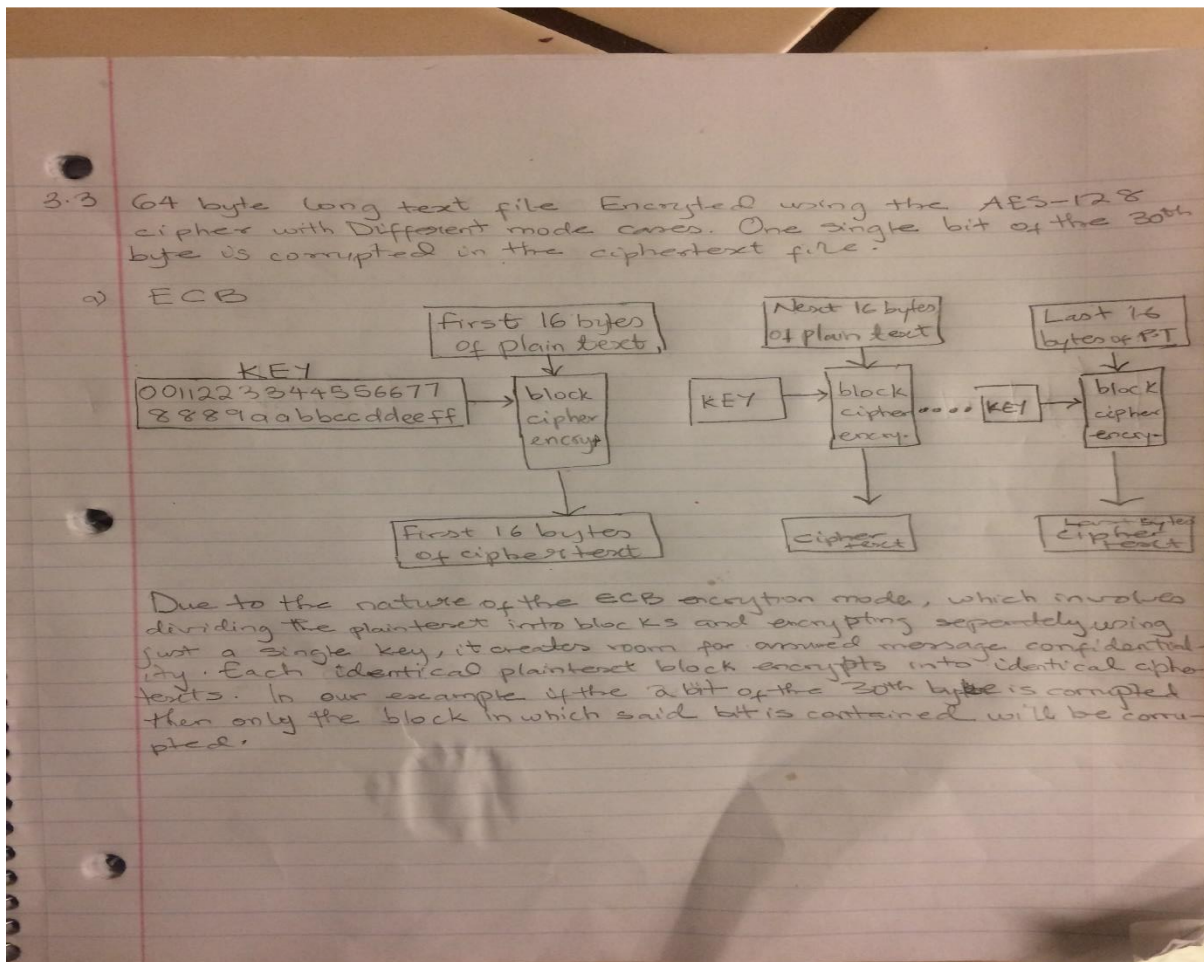 3.3 64 byte long text file Encryted using the AES-128
cipher with Different mode cases. One single bit of the 30th
byte is corrupted in the ciphertext file.
a) ECB
First 16 bytes
of plain text
Next 16 bytes
of plain text
Last 16
bytes of PT
KEY
0011223344556677
8889aabbccddeeff
block
cipher
encryp
KEY
block
cipher
encry.
....
KEY
block
cipher
encry-
First 16 bytes
of ciphertext
cipher
text
Last bytes
cipher
text
Due to the nature of the ECB encrytion mode, which involves
dividing the plaintext into blocks and encrypting seperately using
just a single key, it creates room for message confidential-
ity. Each identical plaintext block encrypts into identical ciphe
texts. In our example if the a bit of the 30th byte is corrupted
then only the block in which said bit is contained will be corru-
pted.